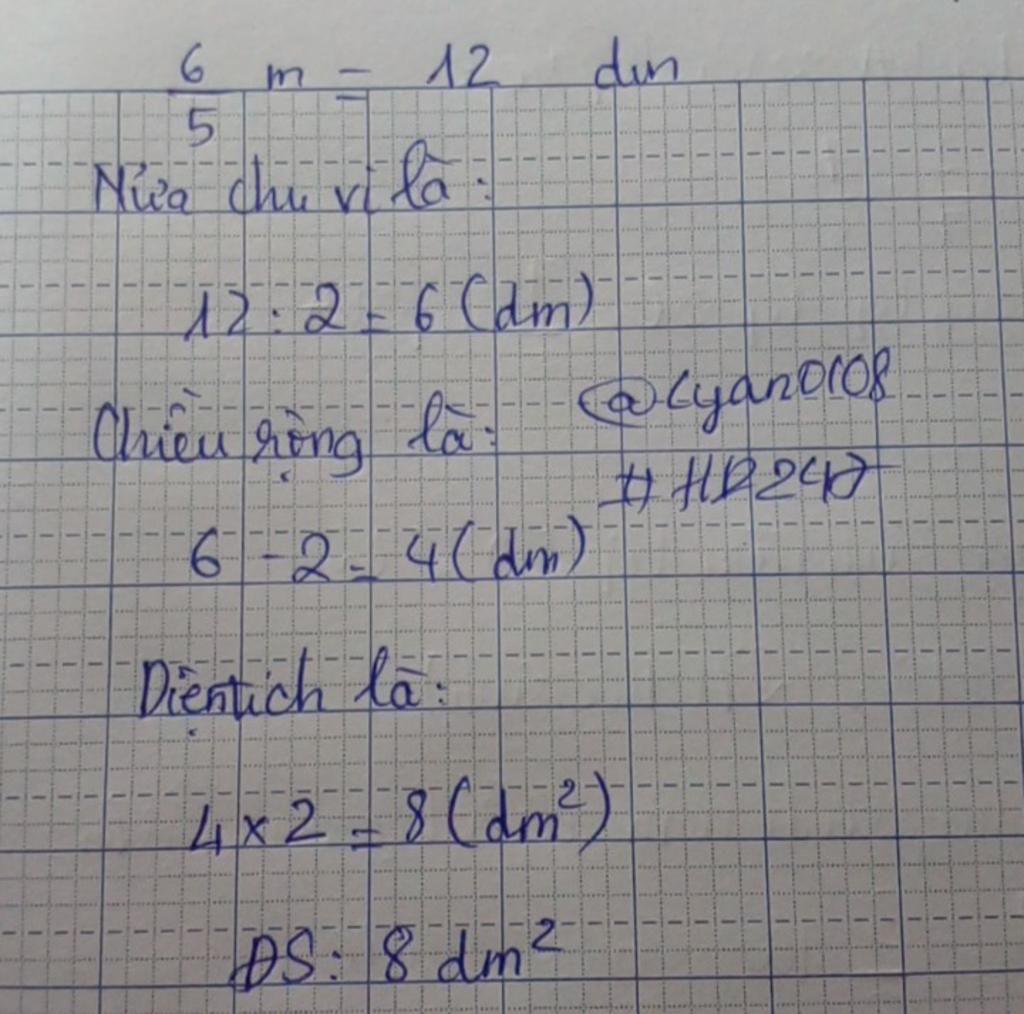 6/5 m = 12 dm
Nửa chu vi là:
12 : 2 = 6 (dm)
Chiều rộng là:
@Cyan0108
# HD247
6 - 2 = 4 (dm)
Diện tích là:
4 x 2 = 8 (dm²)
ĐS: 8 dm²